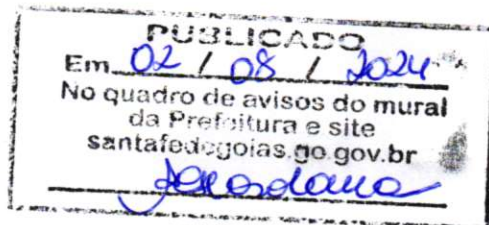 PUBLICADO
Em 02 / 08 / 2024
No quadro de avisos do mural
da Prefeitura e site
santafedegoias.go.gov.br